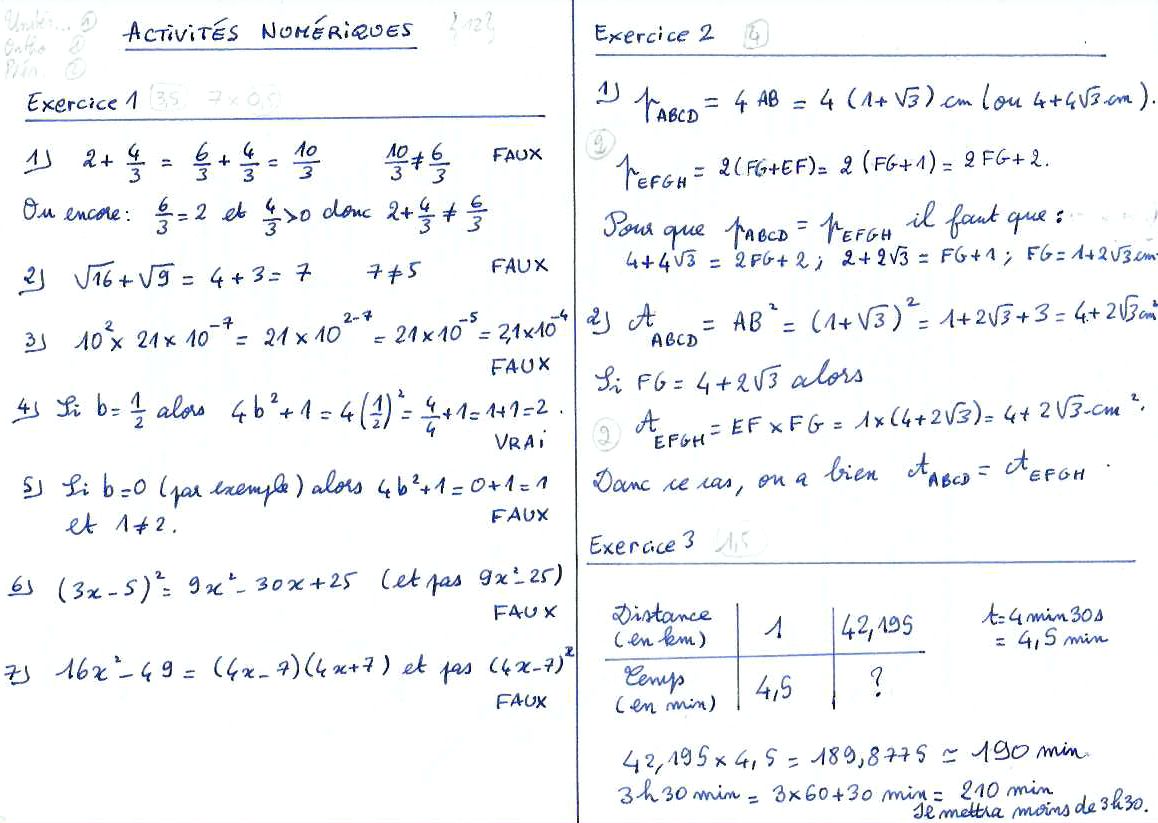 ACTIVITÉS NUMÉRIQUES {12}
Exercice 1 3,5 7 × 0,5
1) 2 + 4/3 = 6/3 + 4/3 = 10/3 10/3 ≠ 6/3 FAUX
Ou encore : 6/3 = 2 et 4/3 > 0 donc 2 + 4/3 ≠ 6/3
2) √16 + √9 = 4 + 3 = 7 7 ≠ 5 FAUX
3) 10² × 21 × 10⁻⁷ = 21 × 10²⁻⁷ = 21 × 10⁻⁵ = 2,1 × 10⁻⁴
FAUX
4) Si b = 1/2 alors 4b² + 1 = 4(1/2)² = 4/4 + 1 = 1 + 1 = 2.
VRAI
5) Si b = 0 (par exemple) alors 4b² + 1 = 0 + 1 = 1
et 1 ≠ 2. FAUX
6) (3x - 5)² = 9x² - 30x + 25 (et pas 9x² - 25)
FAUX
7) 16x² - 49 = (4x - 7)(4x + 7) et pas (4x - 7)²
FAUX
Exercice 2 4
1) p ABCD = 4 AB = 4 (1 + √3) cm (ou 4 + 4√3 cm).
2
p EFGH = 2(FG + EF) = 2 (FG + 1) = 2 FG + 2.
Pour que p ABCD = p EFGH il faut que :
4 + 4√3 = 2FG + 2 ; 2 + 2√3 = FG + 1 ; FG = 1 + 2√3 cm
2) A ABCD = AB² = (1 + √3)² = 1 + 2√3 + 3 = 4 + 2√3 cm²
Si FG = 4 + 2√3 alors
2 A EFGH = EF × FG = 1 × (4 + 2√3) = 4 + 2√3 cm².
Dans ce cas, on a bien A ABCD = A EFGH.
Exercice 3 1,5
Distance (en km) 1 42,195 t = 4 min 30s
= 4,5 min
Temps (en min) 4,5 ?
42,195 × 4,5 = 189,8775 ≃ 190 min.
3h 30 min = 3 × 60 + 30 min = 210 min
Je mettra moins de 3h30.